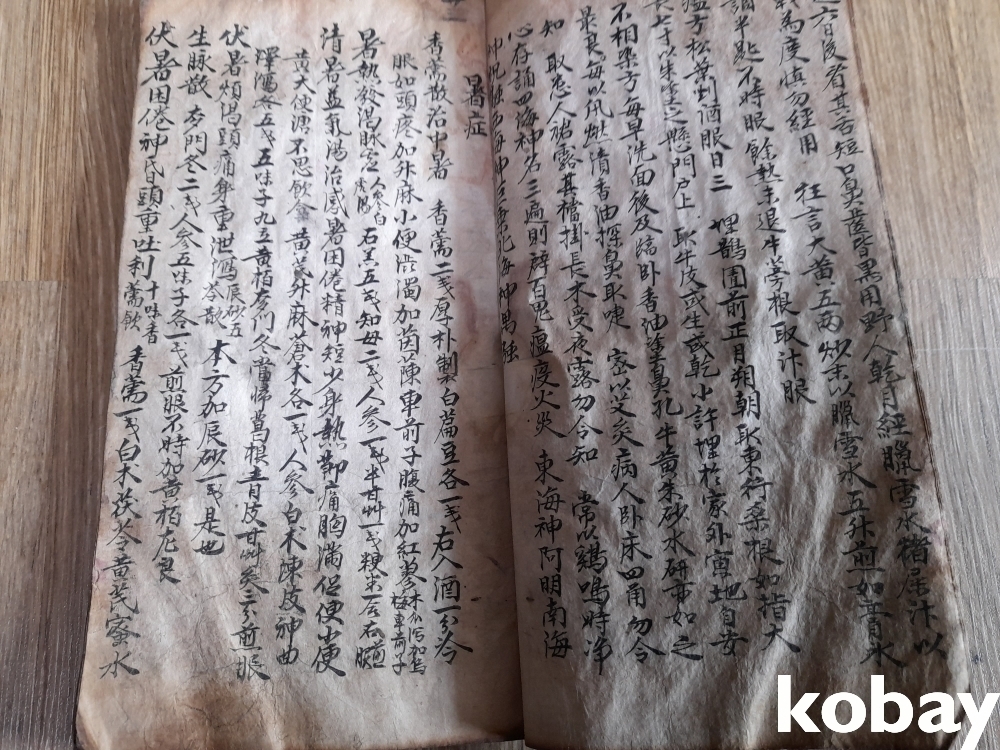 六日後省其舌短口鼻齒皆黑用野人乾月經臘雪水猪屎汁以
爲度慎勿經用 狂言大黃五兩炒赤以臘雪水五升煎如膏水
調半匙不時服 餘熱未退牛蒡根取汁服
瘟方松葉剉酒服日三 埋鵲園前正月朔朝取東行桑根如指大
長七寸以朱塗之懸門戶上 取牛皮或生或乾小許埋於家外寅地自安
不相染方每早洗面後及臨臥香油塗鼻孔牛黃朱砂水研亦如之
最良每以紙燃清香油探鼻取嚏 密以艾灸病人臥床四角勿令
知 取急人露其襠掛長木受夜露勿令知 常以鷄鳴時淨
心存誦四海神名三遍則辟百鬼瘟疫火災 東海神阿明南海
神祝融西海神巨乘北海神禺强
暑症
香薷散治中暑 香薷二戔厚朴製白扁豆各一戔右入酒一分令
服如頭疼加升麻小便澁濁加茵蔯車前子腹痛加紅蓼 木瓜瀉加烏梅車前子
暑熱發渴脉虛人參白虎湯 石羔五戔知母二戔人參一戔半甘艸一戔粳米一合右煎服
清暑益氣湯治感暑困倦精神短少身熱節痛胸滿促便小便
黃大便溏不思飮食 黃芪升麻蒼朮各一戔人參白朮陳皮神曲
澤瀉各五戔五味子九立黃栢麥門冬當歸葛根青皮甘艸各三分煎服
伏暑煩渴頭痛身重泄瀉辰砂五苓散 本方加辰砂一戔是也
生脉散 麥門冬二戔人參五味子各一戔煎服不時加黃栢尤良
伏暑困倦神昏頭重吐利十味香薷飮 香薷一戔白朮茯苓黃芪蜜水
kobay